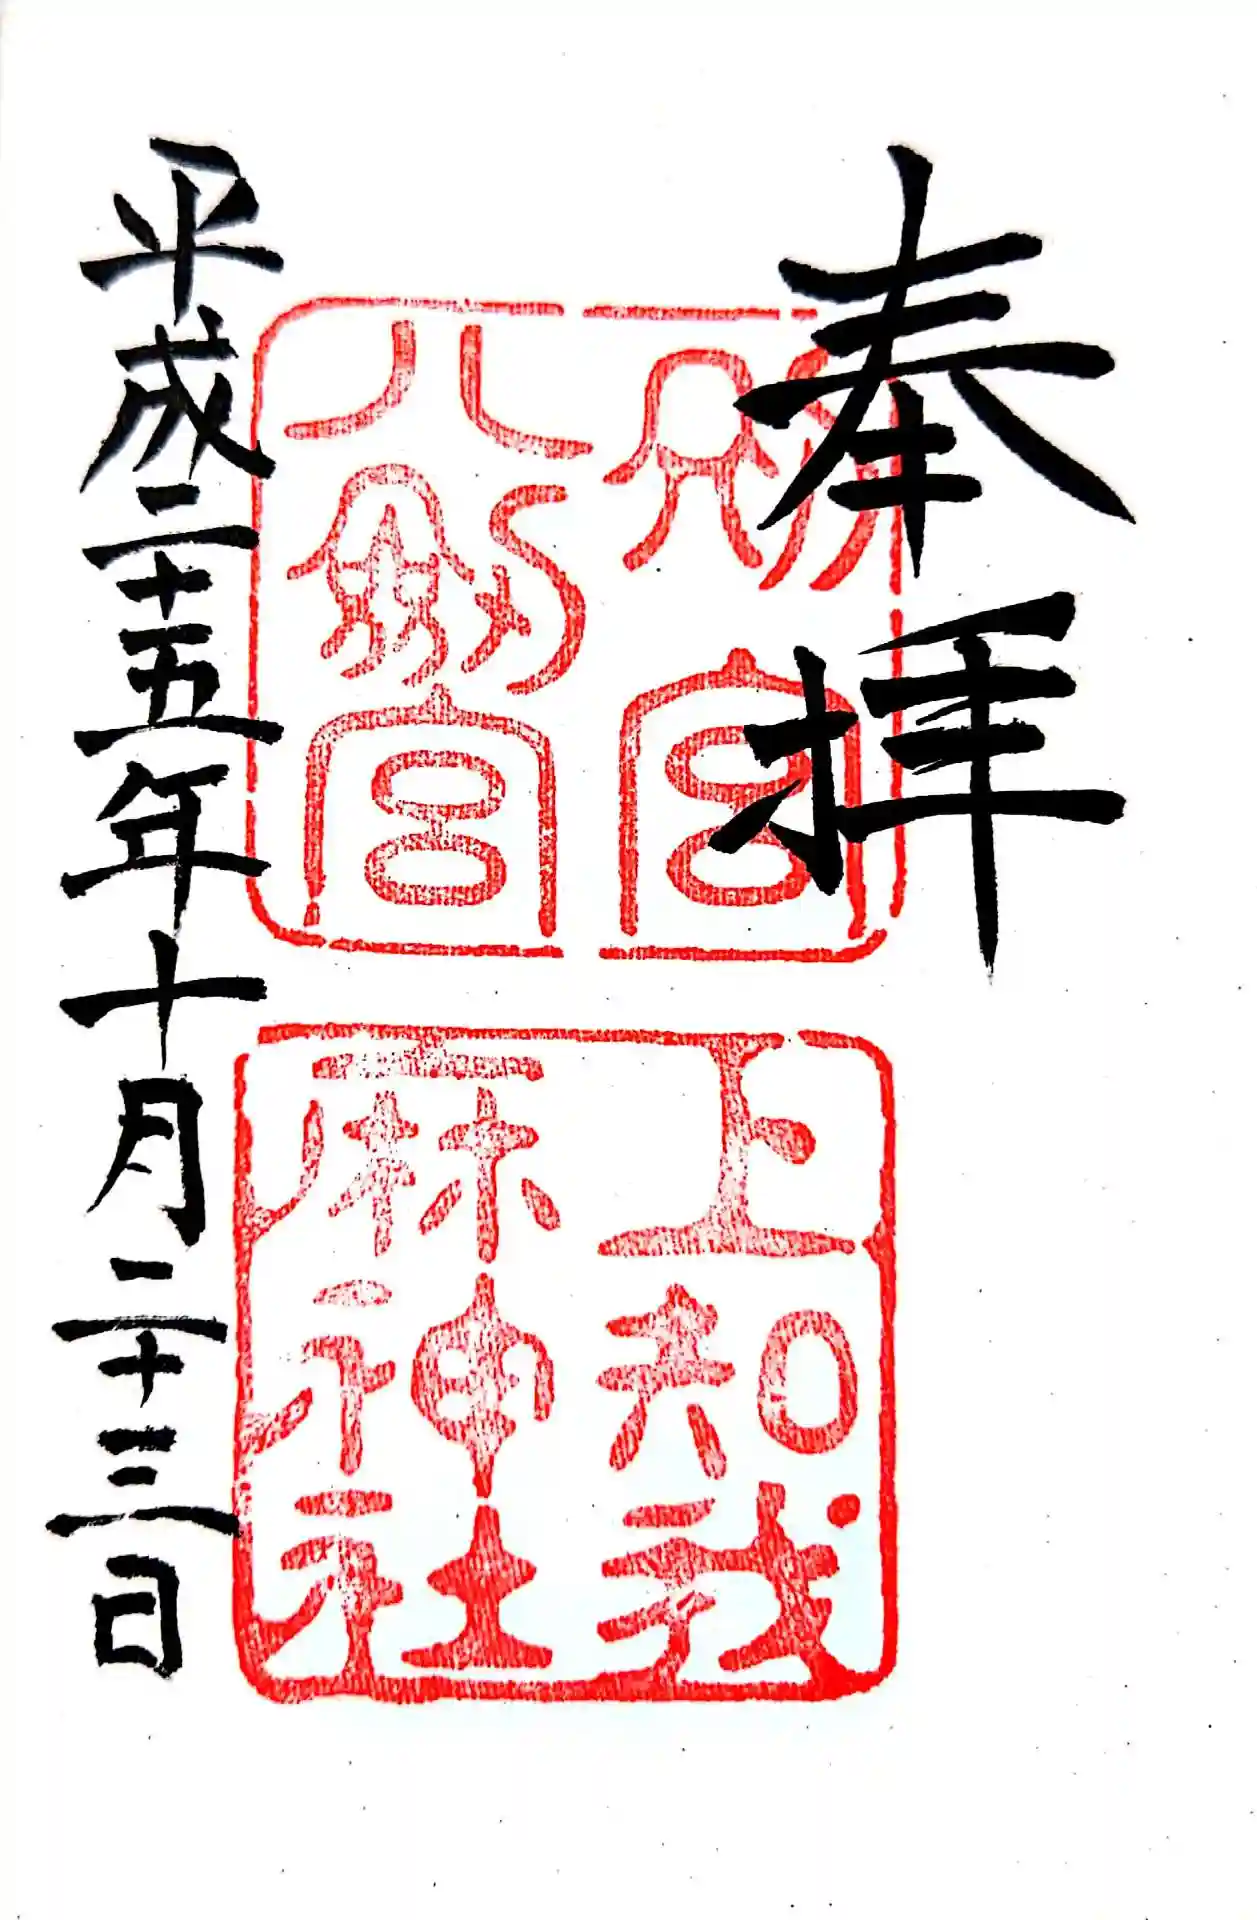 奉拝
別宮
八劔宮
上知我
麻神社
平成二十五年十月二十三日